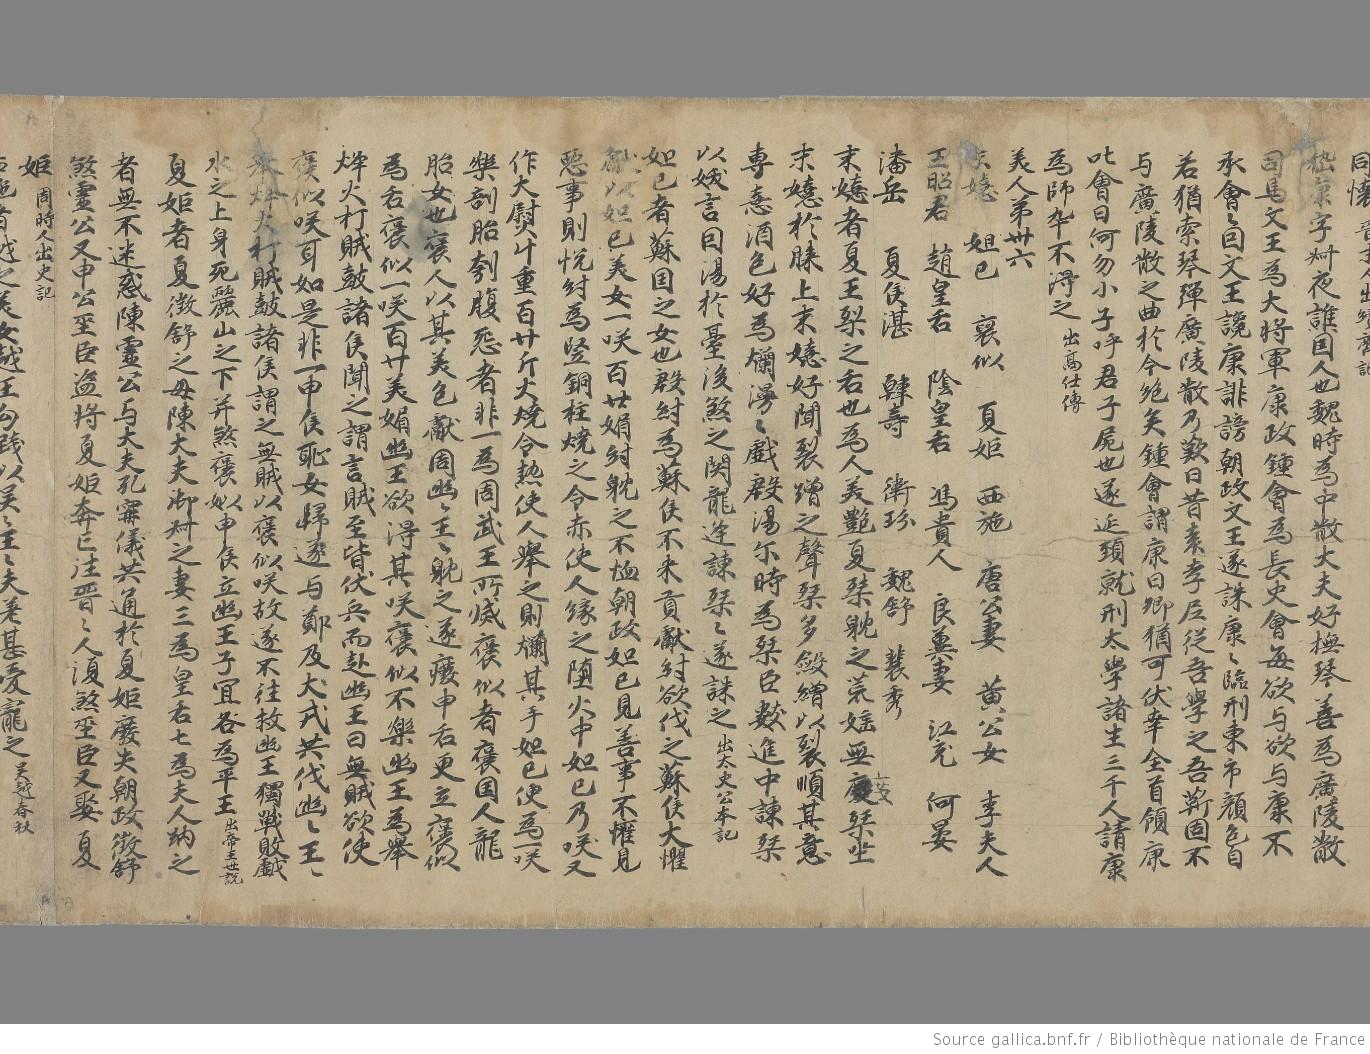 嵇康字叔夜譙囯人也魏時為中散大夫好撫琴善為廣陵散
司馬文王為大將軍康政鍾會為長史會每欲与欲与康不
承會〻曰文王讒康誹謗朝政文王遂誅康〻臨刑東市顔色自
若猶索琴弾廣陵散乃歎曰昔袁孝尼從吾學之吾靳固不
与廣陵散之曲於今绝矣鍾會謂康曰卿猶可伏幸全首領康
叱會曰何勿小子呼君子屍也遂延頭就刑太學諸生三千人請康
為師卒不淂之 出髙仕傳
美人苐卅六
末嬉 妲己 襃似 夏姫 西施 唐公妻 黄公女 李夫人
王昭君 趙皇后 陰皇后 馮貴人 良冀妻 江充 何晏
潘岳 夏侯湛 韓壽 衛玠 魏舒 裴秀
末嬉者夏王桀之后也為人美艶夏桀躭之荒媱無度桀坐
末嬉於膝上末嬉好聞裂繒之聲桀多斂繒以裂順其意
専意酒色好為爛漫〻戯殷湯尒時為桀臣數進中諌桀
以娥言囙湯於臺後煞之関龍逄諌桀〻遂誅之 出太史公本記
妲己者蘇囯之女也殷紂為蘇侯不来貢獻紂欲伐之蘇侯大懼
獻以妲己美女一咲百廿媚紂躭之不恤朝政妲己見善事不懽見
惡事則恱紂為竪銅柱燒之令赤使人縁之堕火中妲己乃咲又
作大熨斗重百廿斤火燒令热使人舉之則爛其手妲己便為一咲
樂剖胎刳腹怨者非一為周武王所㓕襃似者襃国人龍
胎女也襃人以其美色獻周幽〻王〻躭之遂癈申后更立襃似
為后襃似一咲百廿美媚幽王欲淂其咲襃似不樂幽王為舉
烽火打賊皷諸侯聞之謂言賊至皆伏兵而赴幽王曰無賊欲使
襃似咲耳如是非一申侯恥女歸遂与鄫及犬戎共伐幽〻王〻
舉烽火打賊皷諸侯謂之無賊以襃似咲故遂不往救幽王獨戰敗戯
水之上身死麗山之下并煞襃姒申侯立幽王子冝咎為平王 出帝王世說
夏姫者夏徴舒之母陳大夫御叔之妻三為皇后七為夫人納之
者無不迷惑陳靈公与大夫孔寧儀共通於夏姫廢失朝政徴舒
煞靈公又申公巫臣盗将夏姫奔亡注晋〻人復煞巫臣又娶夏
姫 周時人出史記
者越之美女越王勾践以吴〻王〻夫差甚愛寵之 吴越春秋
Source gallica.bnf.fr / Bibliothèque nationale de France